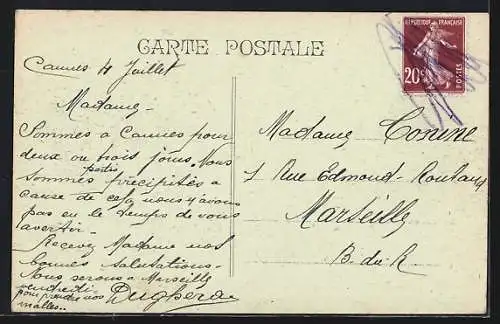 CARTE POSTALE
REPUBLIQUE FRANÇAISE
20c
POSTES
Cannes 4 Juillet
Madame -
Sommes à Cannes pour
deux ou trois jours. Nous
sommes partis précipités à
cause de cela nous n'avons
pas eu le temps de vous
avertir -
Recevez Madame nos
bonnes salutations -
Nous serons à Marseille
vendredi
pour prendre nos
malles..
Madame Conine
1 Rue Edmond-Rostand
Marseille
B. du R